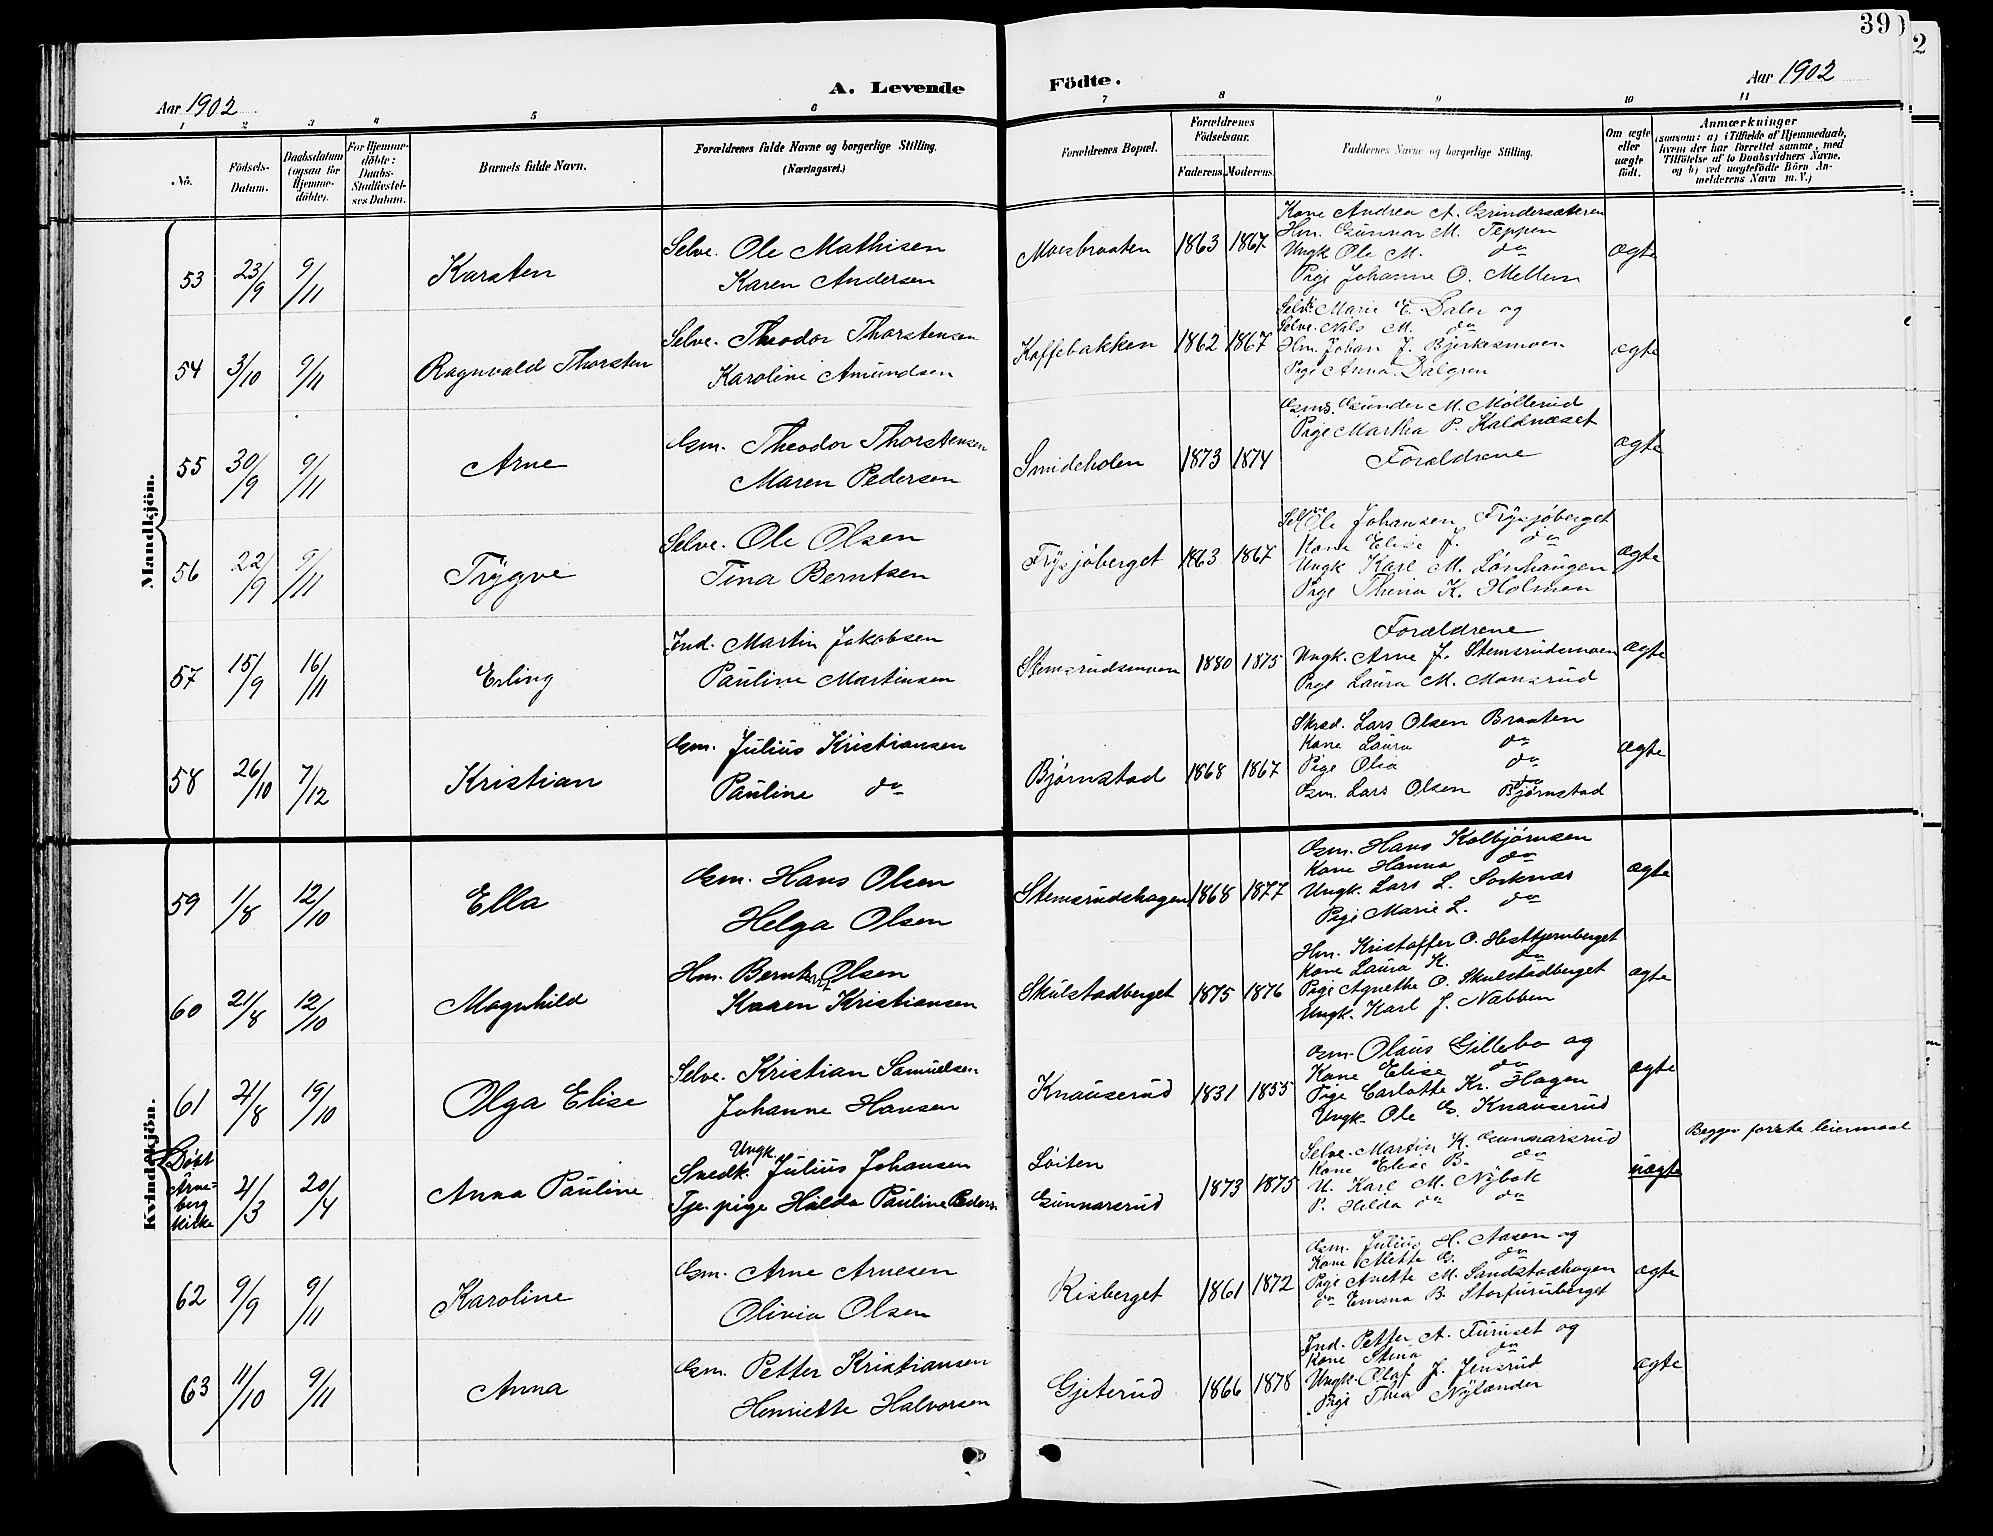 39
2
Aar 1902
A. Levende
Födte.
Aar 1902
1 2 3 4 5 6 7 8 9 10 11
No.
Födsels-Datum.
Daabsdatum (ogsaa för Hjemme-döbte).
For Hjemme-döbte: Daabs-Stadfæstel-ses Datum.
Barnets fulde Navn.
Forældrenes fulde Navne og borgerlige Stilling. (Næringsvei.)
Forældrenes Bopæl.
Forældrenes Födselsaar.
Faderens. Moderens.
Faddernes Navne og borgerlige Stilling.
Om ægte eller uægte födt.
Anmærkninger
(saasom: a) i Tilfælde af Hjemmedaab, hvem der har forrettet samme, med Tilföielse af to Daabsvidners Navne, og b) ved uægtefödte Börn An-melderens Navn m. V.)
Mandkjön.
53 23/9 9/11 Karsten
Selve. Ole Mathisen
Karen Andersen
Moesbraaten 1863 1867
Kone Andrea A. Grindersæteren
Hm. Gunnar M. Teppen
Ungk Ole M. do
Pige Johanne O. Mellem
ægte
54 3/10 9/11 Ragnvald Thorsten
Selve. Theodor Thorstensen
Karoline Amundsen
Kaffebakken 1862 1867
Selvk. Marie E. Daler og
Selve. Nils M. do
Hm. Johan J. Bjerkesmoen
Pige Anna Dalgren
ægte
55 30/9 9/11 Arne
Gsm. Theodor Thorstensen
Maren Pedersen
Smideholen 1873 1874
Gsms. Gunder M. Møllerud
Pige Martha P. Kaldnæset
Forældrene
ægte
56 22/9 9/11 Trygve
Selve. Ole Olsen
Tina Berntsen
Frysjøberget 1863 1867
Selve Ole Johansen Frysjøberget
Kone Elise J. do
Ungk Karl M. Lønhaugen
Pige Thina K. Holmen
ægte
57 15/9 16/11 Erling
Ind. Martin Jakobsen
Pauline Martinsen
Stemsrudsmoen 1880 1875
Forældrene
Ungk. Arne J. Stemsrudsmoen
Pige Laura M. Monsrud
ægte
58 26/10 7/12 Kristian
Gsm. Julius Kristiansen
Pauline do
Bjørnstad 1868 1867
Skræd. Lars Olsen Braaten
Kone Laura do
Pige Olia do
Gsm. Lars Olsen Bjørnstad
ægte
Kvindekjön.
59 1/8 12/10 Ella
Gsm. Hans Olsen
Helga Olsen
Stemsrudshagen 1868 1877
Gsm. Hans Kolbjørnsen
Kone Hanna do
Ungk. Lars L. Sorknæs
Pige Marie L. do
ægte
60 21/8 12/10 Magnhild
Hm. Bernt Olsen
Karen Kristiansen
Skulstadberget 1875 1876
Hm. Kristoffer O. Hestkjernberget
Kone Laura K. do
Pige Agnethe O. Skulstadberget
Ungk. Karl J. Næbben
ægte
61 21/8 19/10 Olga Elise
Selve. Kristian Samuelsen
Johanne Hansen
Knauserud 1831 1855
Gsm. Olaus Gillebo og
Kone Elise do
Pige Carlotte Kr. Hagen
Ungk. Ole G. Knauserud
ægte
Døbt Arne-berg Kirke 21/3 20/4 Anna Pauline
Ungk.
Snedk. Julius Johansen
Tje. pige Hilda Pauline Peders.
Løiten
Gunnarsrud 1873 1875
Selve. Martin K. Gunnarsrud
Kone Elise B. do
U. Karl M. Nybak
P. Hilda do do
uægte
Begges første leiermaal
62 9/9 9/11 Karoline
Gsm. Arne Arnesen
Olivia Olsen
Risberget 1861 1872
Gsm. Julius H. Aasen og
Kone Mette G. do
Pige Anette M. Sandstadhagen
do Emma B. Storfuruberget
ægte
63 11/10 9/11 Anna
Gsm. Petter Kristiansen
Henriette Halvorsen
Gjeterud 1866 1878
Ind. Petter A. Furuset og
Kone Stina do
Ungk. Olaf J. Jensrud
Pige Thea Nylander
ægte